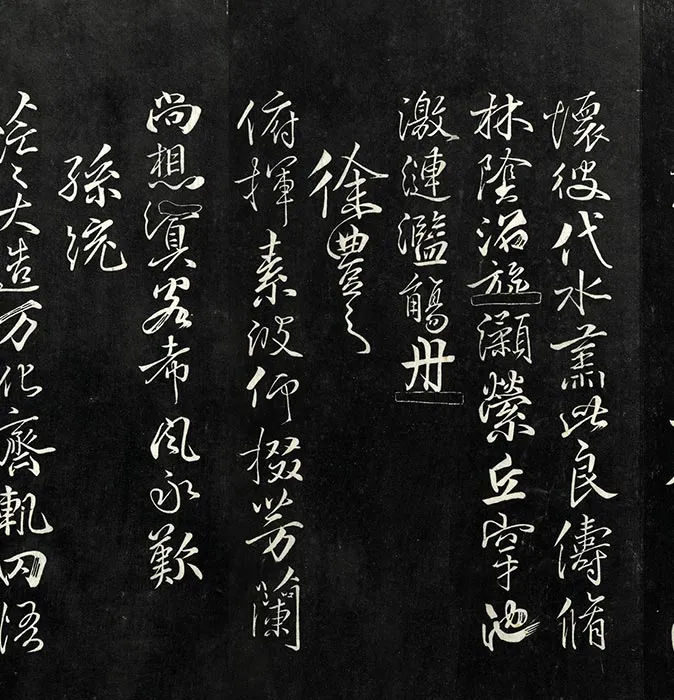 懷彼代水此良儔脩
林陰沼旋瀨縈丘穿池
激漣濫觴舟
徐豐之
俯揮素波仰掇芳蘭
尚想冥客希風永歎
孫統
茫々大造万化齊軌罔悟